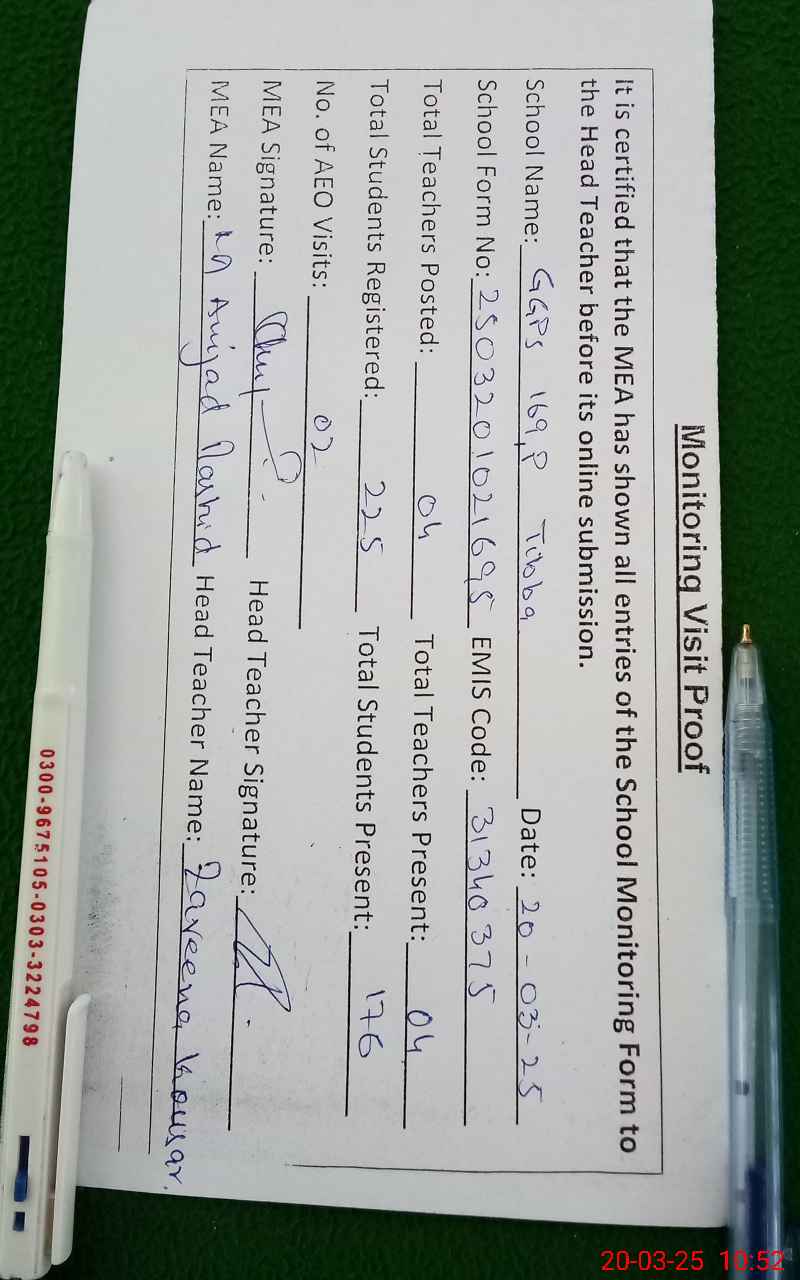 Monitoring Visit Proof
It is certified that the MEA has shown all entries of the School Monitoring Form to
the Head Teacher before its online submission.
School Name: GGPS 169,P Tibba Date: 20-03-25
School Form No: 2503201021695 EMIS Code: 31340375
Total Teachers Posted: 04 Total Teachers Present: 04
Total Students Registered: 225 Total Students Present: 176
No. of AEO Visits: 02
MEA Signature: Head Teacher Signature:
MEA Name: Amjad Rashid Head Teacher Name: Zaveena Kousar.
0300-9675105-0303-3224798
20-03-25 10:52